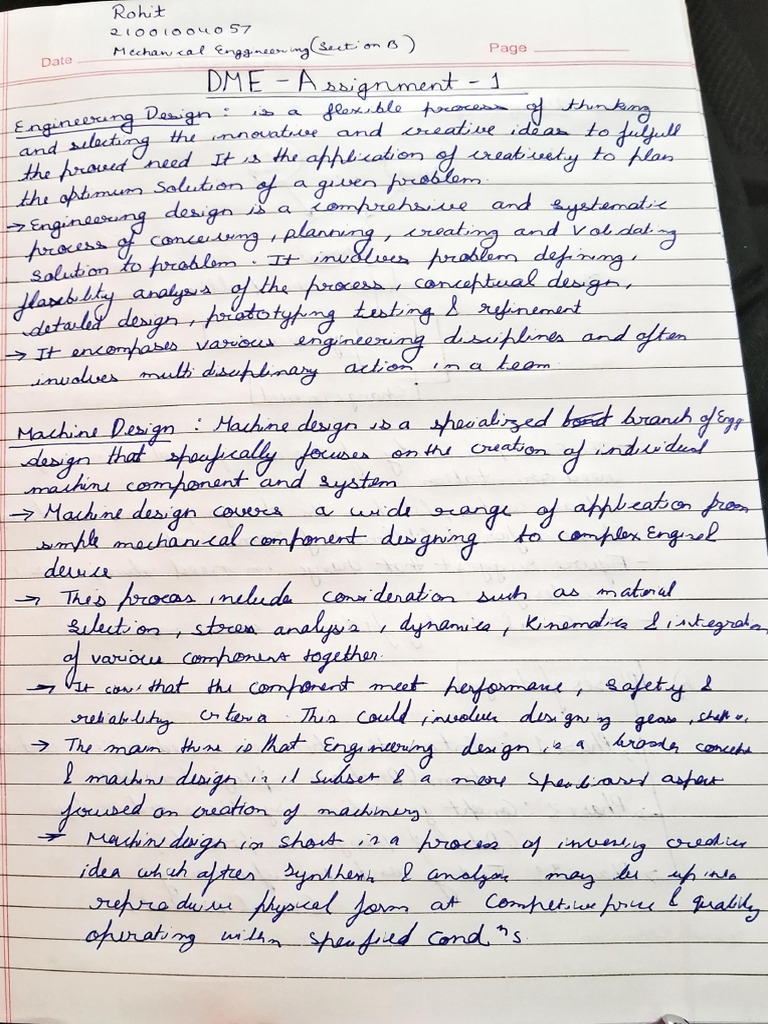 Rohit
21001004057
Mechanical Enggneering (Section B)
Date Page
DME - Assignment - 1
Engineering Design : is a flexible process of thinking
and selecting the innovative and creative ideas to fulfull
the proved need It is the application of creativety to plan
the optimum Solution of a given problem.
→ Engineering design is a comprehsive and systematic
process of conceiving, planning, creating and Validating
solution to problem. It involves problem defining,
flasebility analysis of the process, conceptual design,
detailed design, prototyping testing & refinement
→ It encompases various engineering disciplines and often
involves multidisciplinary action in a team.
Machine Design : Machine design is a specialized branch of Engg
design that specifically focuses on the creation of individual
machine component and system
→ Machine design covers a wide range of application from
simple mechanical component designing to complex
device
→ This process include consideration such as material
selection, stress analysis, dynamics, Kinematics & integration
of various component together.
→ It that the component meet performance, safety &
reliability criteria. This could involve designing gears,
→ The main is that Engineering design is a broader concept
& machine design is subset & a more aspect
focused on creation of machinery
→ Machine design in short is a process of creative
idea which after synthesis & analysis may be up
physical form at Competive price & quality
operating within Specified Cond.ns.